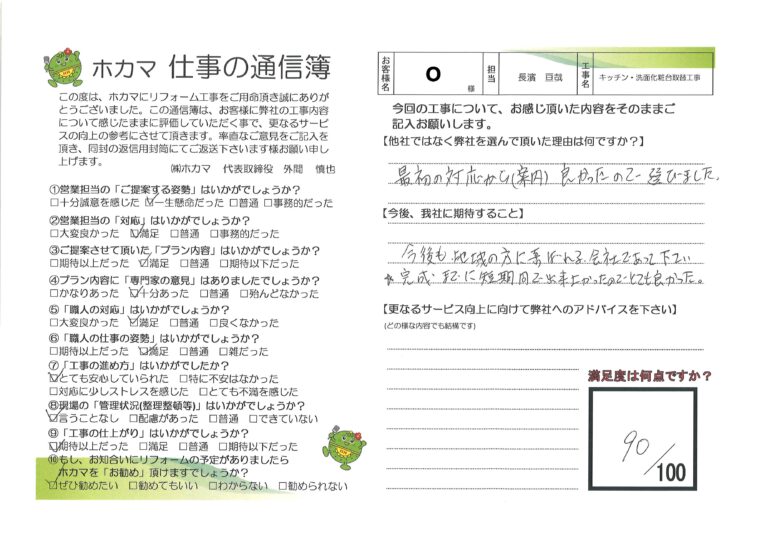 ホカマ 仕事の通信簿
この度は、ホカマにリフォーム工事をご用命頂き誠にありが
とうございました。この通信簿は、お客様に弊社の工事内容
について感じたままに評価していただく事で、更なるサービ
スの向上の参考にさせて頂きます。率直なご意見をご記入を
頂き、同封の返信用封筒にてご返送下さいます様お願い申し
上げます。
㈱ホカマ 代表取締役 外間 慎也
①営業担当の「ご提案する姿勢」はいかがでしょうか?
□十分誠意を感じた ☑一生懸命だった □普通 □事務的だった
②営業担当の「対応」はいかがでしょうか?
□大変良かった ☑満足 □普通 □事務的だった
③ご提案させて頂いた「プラン内容」はいかがでしょうか?
□期待以上だった ☑満足 □普通 □期待以下だった
④プラン内容に「専門家の意見」はありましたでしょうか?
□かなりあった ☑十分あった □普通 □殆んどなかった
⑤「職人の対応」はいかがでしょうか?
□大変良かった ☑満足 □普通 □良くなかった
⑥「職人の仕事の姿勢」はいかがでしょうか?
□期待以上だった ☑満足 □普通 □雑だった
⑦「工事の進め方」はいかがでしたか?
☑とても安心していられた □特に不安はなかった
□対応に少しストレスを感じた □とても不満を感じた
⑧現場の「管理状況(整理整頓等)」はいかがでしょうか?
☑言うことなし □配慮があった □普通 □できていない
⑨「工事の仕上がり」はいかがでしょうか?
☑期待以上だった □満足 □普通 □期待以下だった
⑩もし、お知合いにリフォームの予定がありましたら
ホカマを「お勧め」頂けますでしょうか?
☑ぜひ勧めたい □勧めてもいい □わからない □勧められない
お客様名 O 様 担当 長濱 亘哉 工事名 キッチン・洗面化粧台取替工事
今回の工事について、お感じ頂いた内容をそのままご
記入お願いします。
【他社ではなく弊社を選んで頂いた理由は何ですか?】
最初の対応から(案内)良かったので選びました。
【今後、我社に期待すること】
今後も地域の方に喜ばれる会社であって下さい
完成までに短期間で出来上がったのでとても良かった。
【更なるサービス向上に向けて弊社へのアドバイスを下さい】
(どの様な内容でも結構です)
満足度は何点ですか?
90/100